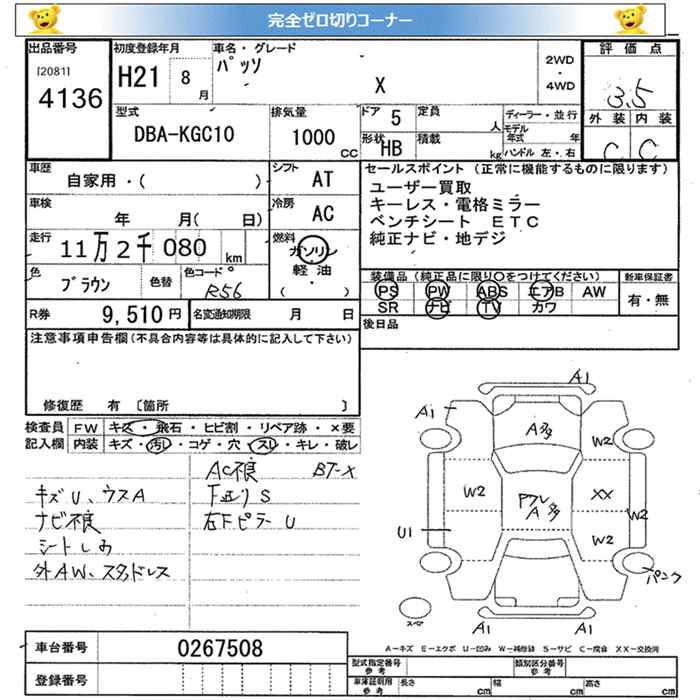 完全ゼロ切りコーナー
出品番号 [2081] 4136
初度登録年月 H21 8月
車名・グレード パッソ X
2WD・4WD
評価点 3.5
型式 DBA-KGC10
排気量 1000CC
ドア 5 定員 人
形状 HB 積載 kg
ディーラー・並行
モデル年式 年
ハンドル 左・右
外装 内装
C C
車歴 自家用・( )
シフト AT
車検 年 月( 日)
冷房 AC
走行 11万2千080km
燃料 ガソリン 軽油 ( )
色 ブラウン 色替 色コード R56
R券 9,510円 名変通知期限 月 日
セールスポイント(正常に機能するものに限ります)
ユーザー買取
キーレス・電格ミラー
ベンチシート ETC
純正ナビ・地デジ
装備品(純正品に限り○をつけてください)
PS PW ABS エアB AW
SR ナビ TV カワ
新車保証書
有・無
後日品
注意事項申告欄(不具合内容等は具体的に記入して下さい)
修復歴 有 〔箇所 〕
検査員記入欄
FW キズ・飛石・ヒビ割・リペア跡・×要
内装 キズ・汚レ・コゲ・穴・スレ・キレ・破レ
AC不良 BT-X
キズU、ウスA 下廻りS
ナビ不良 右下ピラーU
シートしみ
外AW、スタッドレス
A1
A1 A多
W2
W2 Pフレ A多 XX
W2
U1
W2
パンク
スペア
A1 A1
A-キズ E-エクボ U-凹み W-補修跡 S-サビ C-腐食 XX-交換済
車台番号 0267508
登録番号
型式指定番号 参考
類別区分番号 参考
車庫証明用 参考 長さ cm 幅 cm 高さ cm